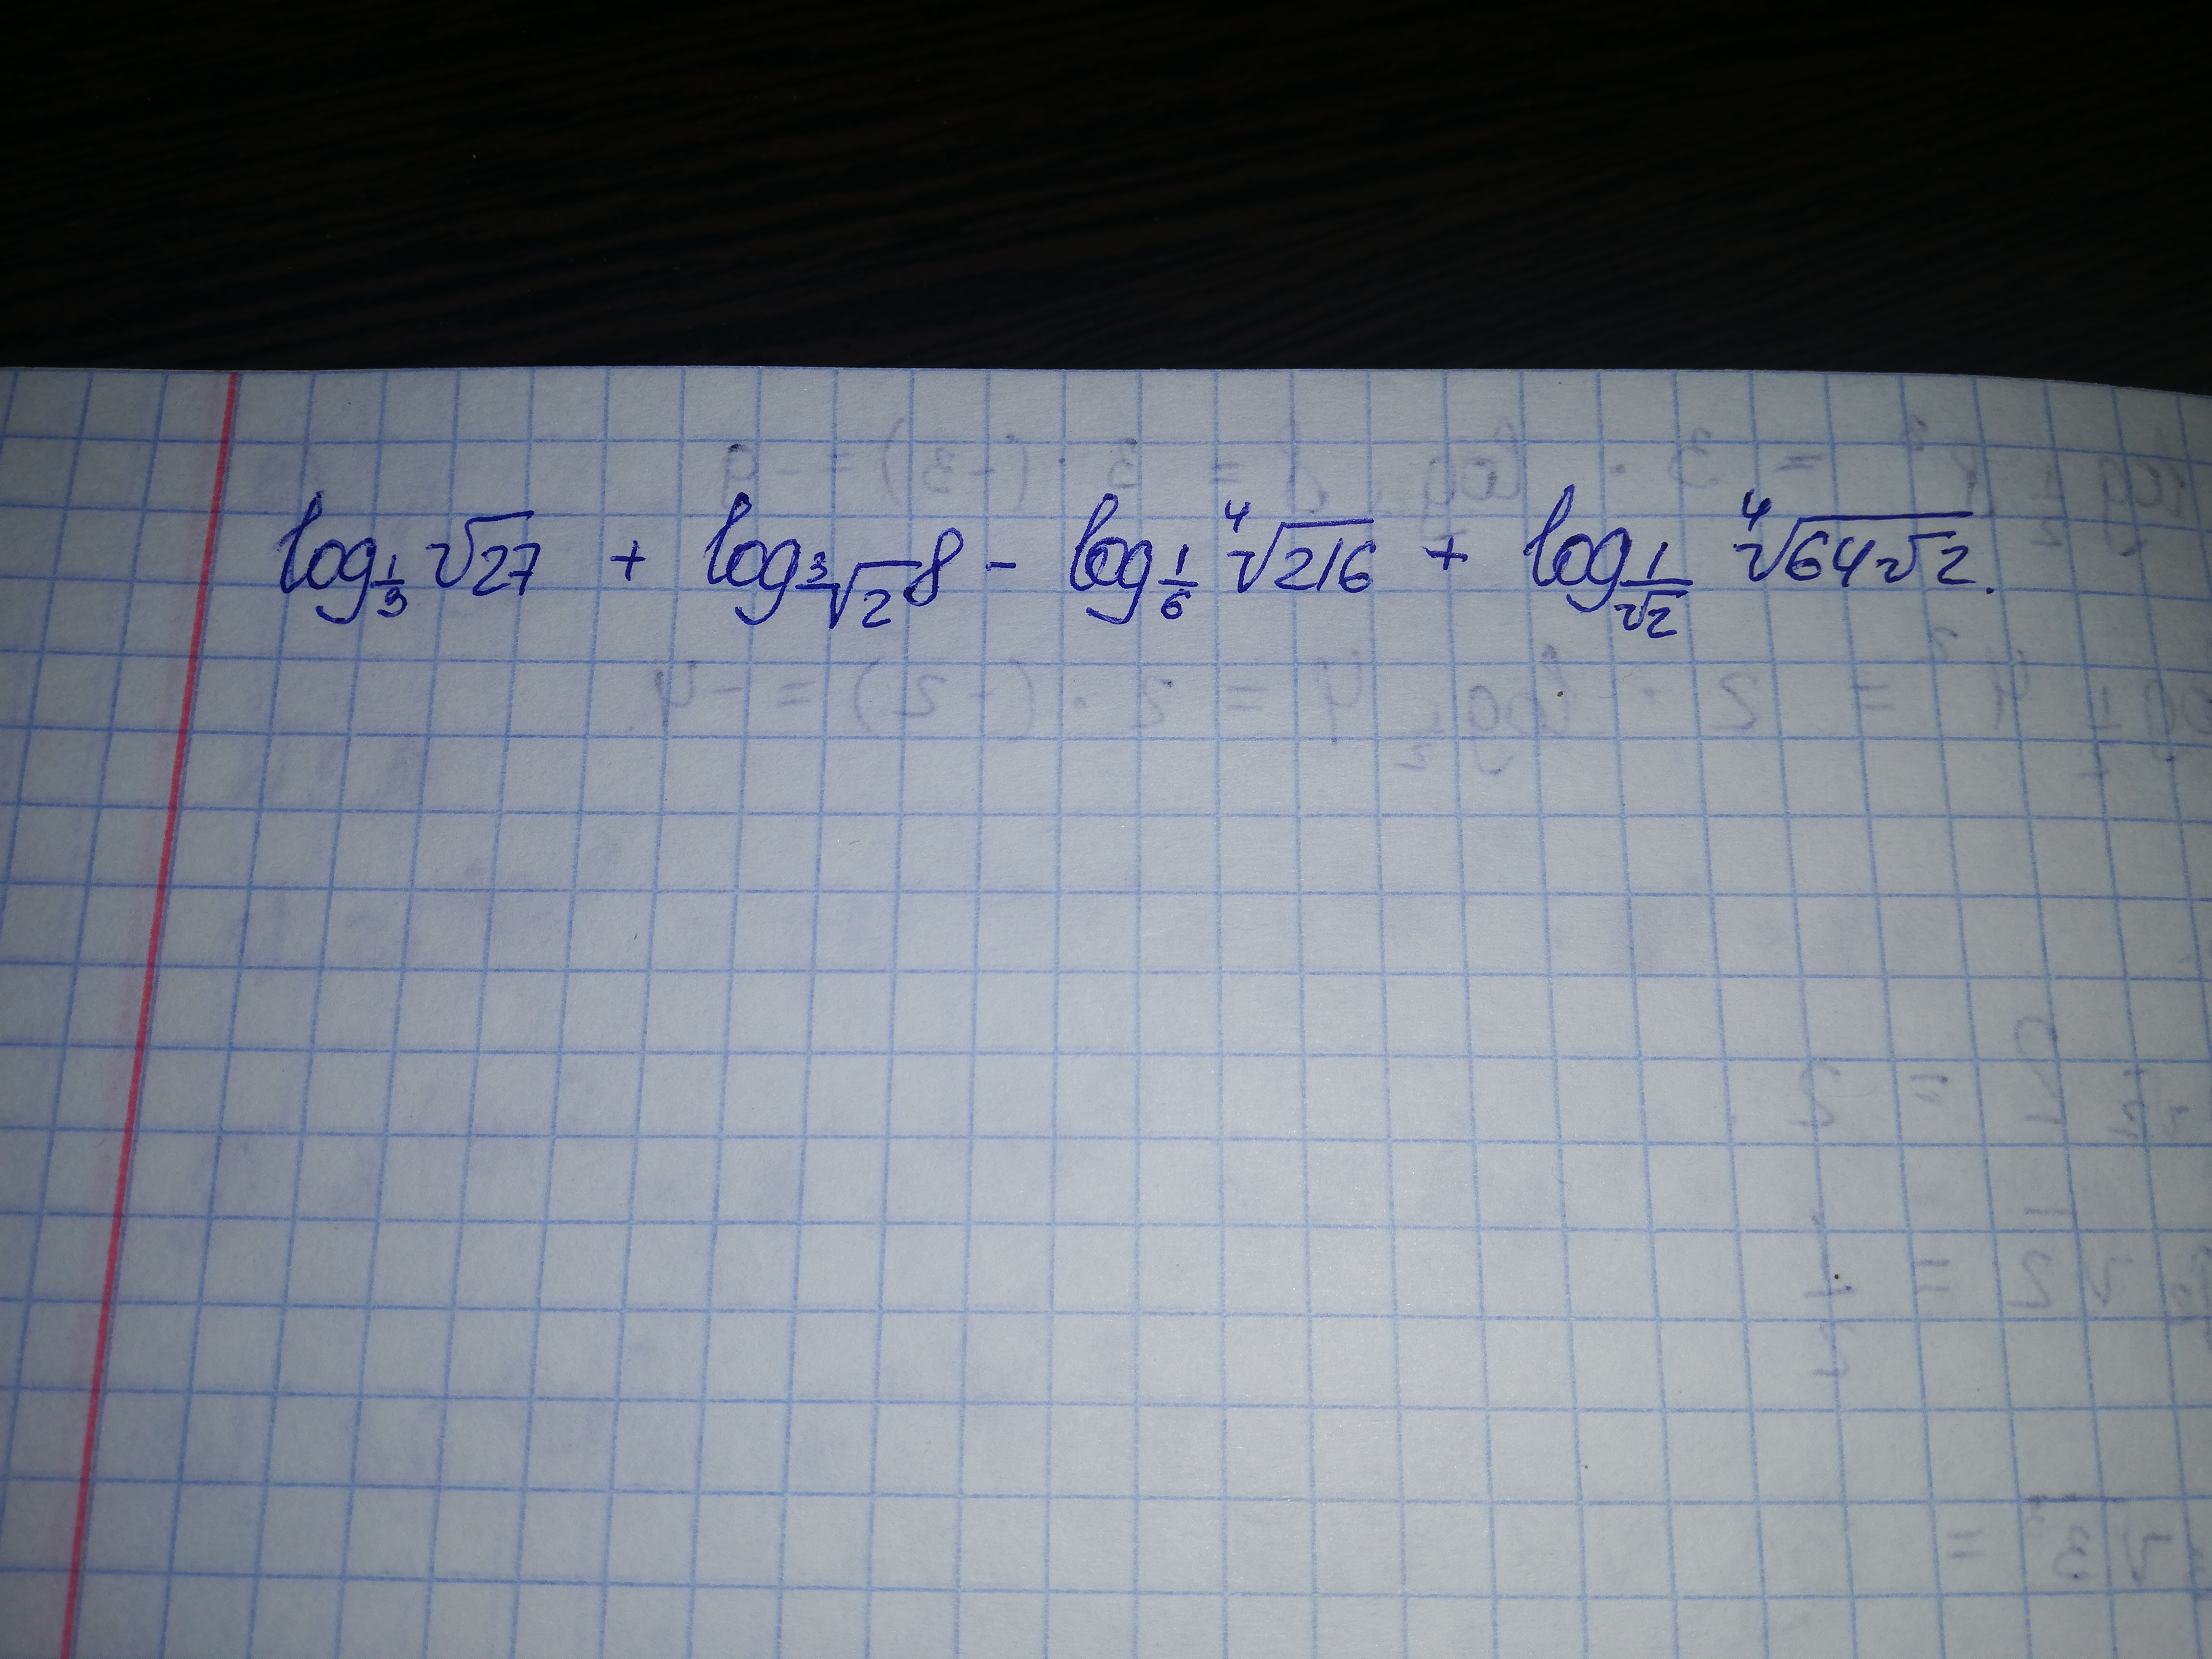 log_{1/3} √27 + log_{∛2} 8 - log_{1/6} ⁴√216 + log_{1/√2} ⁴√(64√2).